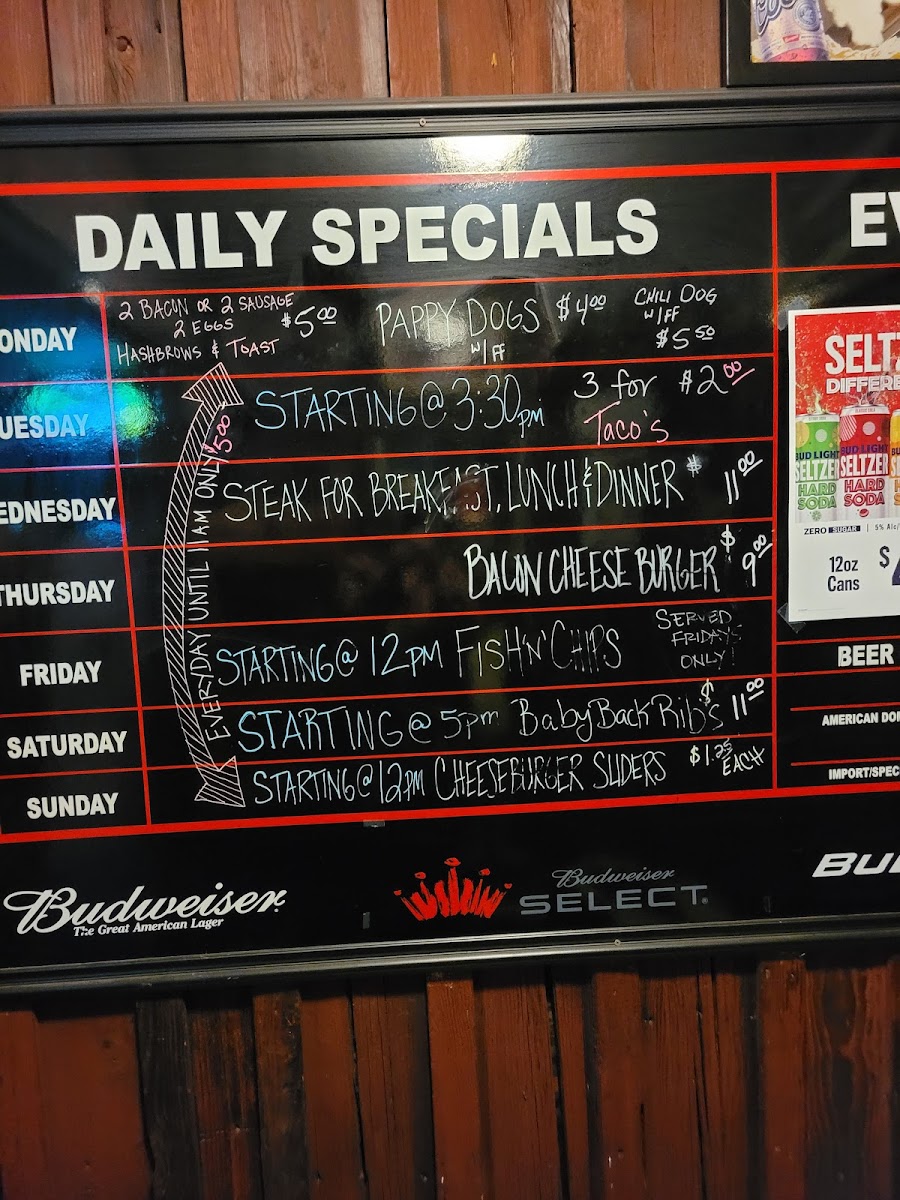 DAILY SPECIALS
ONDAY
2 BACON OR 2 SAUSAGE
2 EGGS
HASHBROWS & TOAST
$5.00
PAPPY DOGS $4.00
W/FF
CHILI DOG
W/FF
$5.50
UESDAY
STARTING @ 3:30pm
3 for $2.00
Taco's
EDNESDAY
STEAK FOR BREAKFAST, LUNCH & DINNER $11.00
THURSDAY
BACON CHEESE BURGER $9.00
FRIDAY
STARTING @ 12PM FISH 'N' CHIPS
SERVED
FRIDAYS
ONLY!
SATURDAY
STARTING @ 5pm Baby Back Rib's $11.00
SUNDAY
STARTING @ 12PM CHEESEBURGER SLIDERS $1.25
EACH
EVERYDAY UNTIL 11AM ONLY $5.00
Budweiser
The Great American Lager
Budweiser
SELECT
BU
EV
SELT
DIFFERE
BUD LIGHT
SELTZER
HARD
SODA
BUD LIGHT
SELTZER
HARD
SODA
ZERO SUGAR | 5% Alc/
12oz
Cans
$
BEER
AMERICAN DO
IMPORT/SPEC